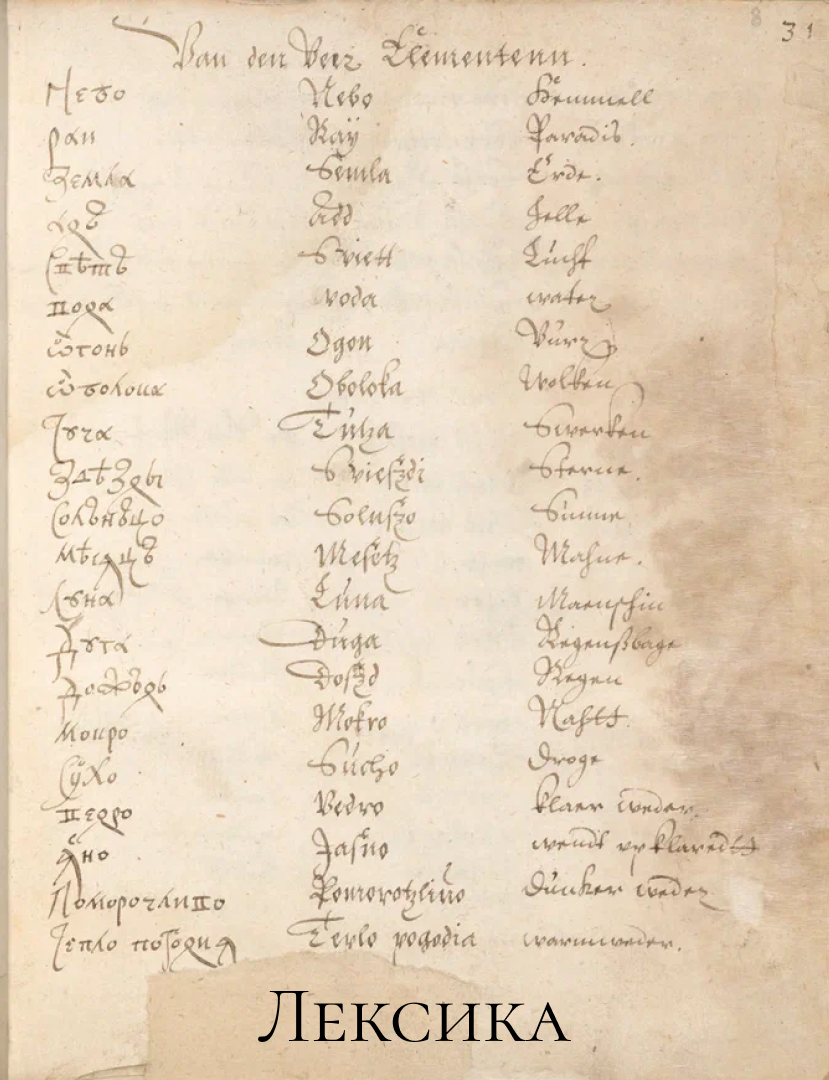 8 31
Van den Veer Elementenn.
Небо Nebo Hemmell
раи Ray Paradis.
Земла Semla Erde.
адъ Add Helle
Свѣтъ Sviett Lucht
вода woda water
ѿгонь Ogon Vür
ѿболока Oboloka Wolken
Туча Tutza Swerken
Звѣзды Svieszdi Sterne.
Солънъцо Solnszo Sunne
мѣсяцъ Mesetz Mahne.
Луна Luna Maenschin
Дуга Duga Regenßbage
Дожъдь Doszd Regen
мокро Mokro Nahtt.
Сухо Sucho Droge
ведро Vedro klaer weder.
ясно Jasno wendt upklaredtt
Поморочливо Pomorotzliuo Duncker weder
Тепло погодия Teplo pogodia warmweder.
Лексика